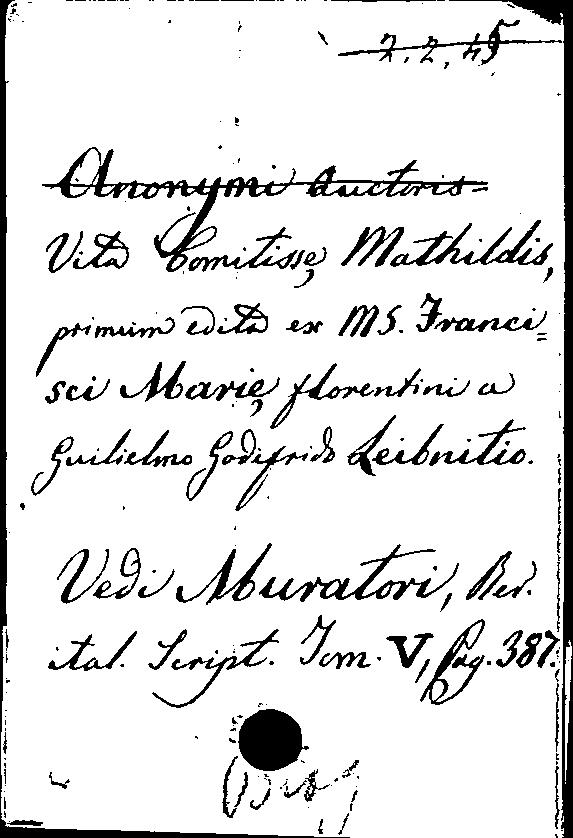 2.2.45
Anonymi Auctoris=
Vita Comitissę Mathildis,
primum edita ex MS. Franci=
sci Marię florentini a
Guilielmo Godifrido Leibnitio.
Vedi Muratori, Rer.
ital. Script. Tom. V, Pag. 387.